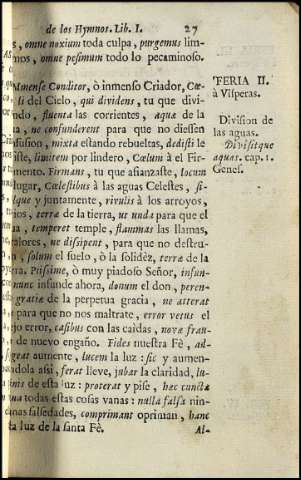 de los Hymnos. Lib. I. 27
s, omne noxium toda culpa, purgemus lim-
mos, omne pesimum todo lo pecaminoso.
Mmense Conditor, ò inmenso Criador, Cœ-
li del Cielo, qui dividens, tu que divi-
ndo, fluenta las corrientes, aquæ de la
a, ne confunderent para que no diessen
nfusion, mixta estando rebueltas, dedisti le
iste, limitem por lindero, Cœlum à el Fir-
mento. Firmans, tu que afianzaste, locum
lugar, Cœlestibus à las aguas Celestes, si-
lque y juntamente, rivulis à los arroyos,
rios, terræ de la tierra, ut unda para que el
ua, temperet temple, flammas las llamas,
alores, ne dissipent, para que no destru-
n, solum el suelo, ò la solidèz, terræ de la
erra. Piissime, ò muy piadoso Señor, infun-
nunc infunde ahora, donum el don, peren-
gratiæ de la perpetua gracia, ne atterat
para que no nos maltrate, error vetus el
jo error, casibus con las caidas, novæ frau-
de nuevo engaño. Fides nuestra Fè, ad-
geat aumente, lucem la luz: sic y aumen-
ndola assi, ferat lleve, jubar la claridad, lu-
inis de esta luz: proterat y pise, hæc cuncta
na todas estas cosas vanas: nulla falsa nin-
nas falsedades, comprimant opriman, hanc
ta luz de la santa Fè.
Al-
FERIA II.
à Visperas.
Division de
las aguas.
Divisitque
aquas. cap. 1.
Genes.